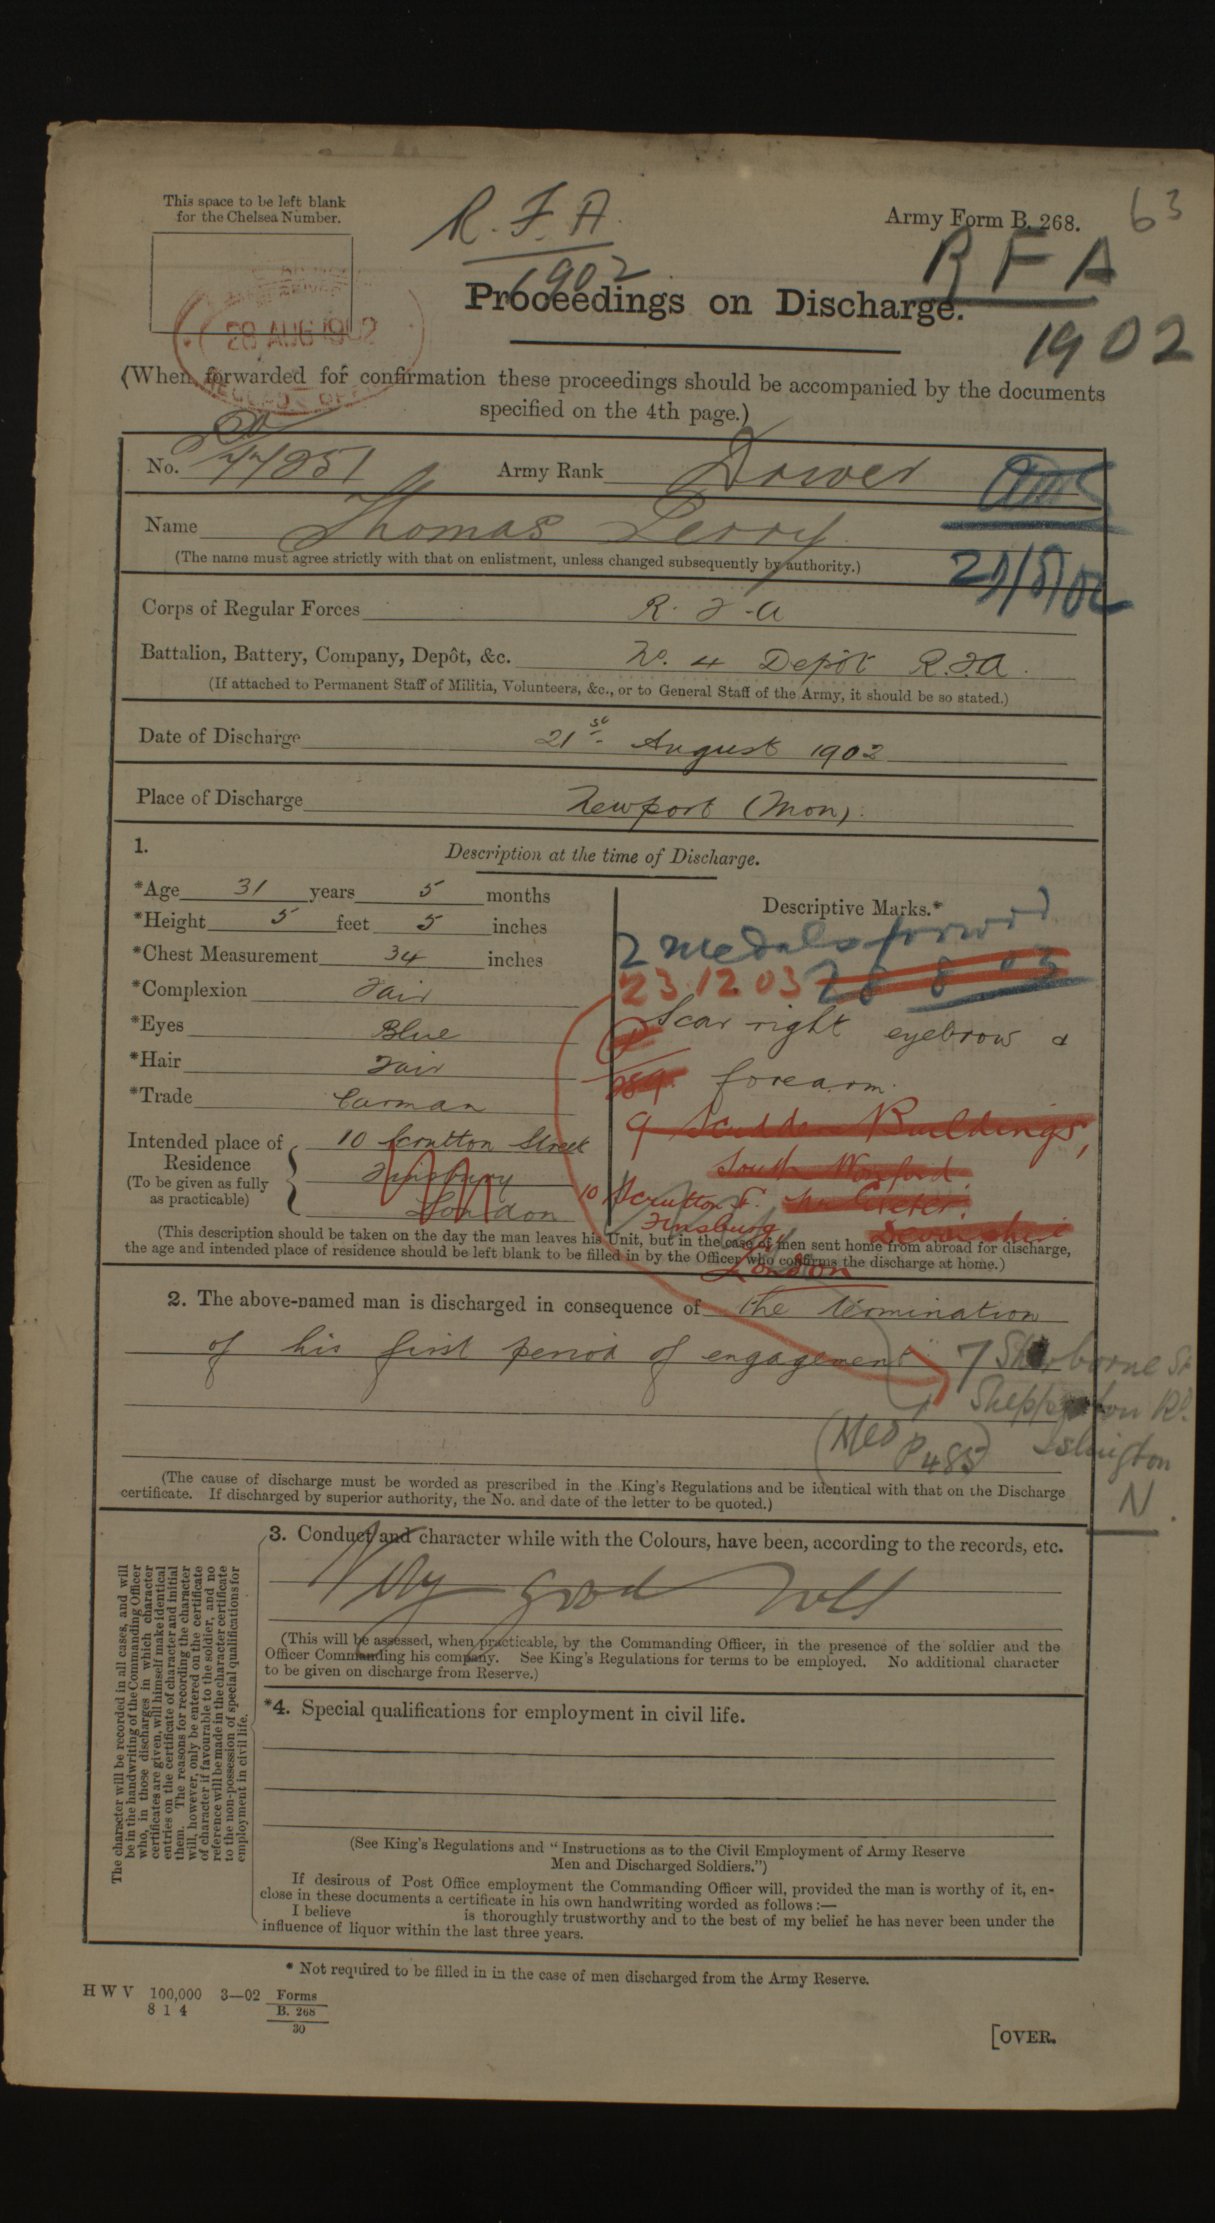 This space to be left blank
for the Chelsea Number.
R. F. A.
1902
Army Form B. 268.
63
R F A
1902
28 AUG 1902
Proceedings on Discharge.
(When forwarded for confirmation these proceedings should be accompanied by the documents
specified on the 4th page.)
No. 77851 Army Rank Driver
Name Thomas Perry
(The name must agree strictly with that on enlistment, unless changed subsequently by authority.)
21/8/02
Corps of Regular Forces R. F. A
Battalion, Battery, Company, Depôt, &c. No. 4 Depôt R.F.A.
(If attached to Permanent Staff of Militia, Volunteers, &c., or to General Staff of the Army, it should be so stated.)
Date of Discharge 21st August 1902
Place of Discharge Newport (Mon).
1. Description at the time of Discharge.
*Age 31 years 5 months
*Height 5 feet 5 inches
*Chest Measurement 34 inches
*Complexion Fair
*Eyes Blue
*Hair Fair
*Trade Carman
Intended place of Residence (To be given as fully as practicable) 10 Scrutton Street
Finsbury
London
Descriptive Marks.*
2 medals forwd
23.12.03 28 8 03
Scar right eyebrow &
forearm.
9 Buildings,
South
10 Scrutton St. Nr Exeter.
Finsbury Devonshire
London
(This description should be taken on the day the man leaves his Unit, but in the case of men sent home from abroad for discharge,
the age and intended place of residence should be left blank to be filled in by the Officer who confirms the discharge at home.)
2. The above-named man is discharged in consequence of the termination
of his first period of engagement
7 Sherborne St
Shepperton Rd.
Islington
N.
(Med P485)
(The cause of discharge must be worded as prescribed in the King's Regulations and be identical with that on the Discharge
certificate. If discharged by superior authority, the No. and date of the letter to be quoted.)
The character will be recorded in all cases, and will
be in the handwriting of the Commanding Officer
who, in those discharges in which character
certificates are given, will himself make identical
entries on the certificate of character and initial
them. The reasons for recording the character
will, however, only be entered on the certificate
of character if favourable to the soldier, and no
reference will be made in the character certificate
to the non-possession of special qualifications for
employment in civil life.
3. Conduct and character while with the Colours, have been, according to the records, etc.
Very good
(This will be assessed, when practicable, by the Commanding Officer, in the presence of the soldier and the
Officer Commanding his company. See King's Regulations for terms to be employed. No additional character
to be given on discharge from Reserve.)
*4. Special qualifications for employment in civil life.
(See King's Regulations and "Instructions as to the Civil Employment of Army Reserve
Men and Discharged Soldiers.")
If desirous of Post Office employment the Commanding Officer will, provided the man is worthy of it, en-
close in these documents a certificate in his own handwriting worded as follows :—
I believe is thoroughly trustworthy and to the best of my belief he has never been under the
influence of liquor within the last three years.
* Not required to be filled in in the case of men discharged from the Army Reserve.
H W V 100,000 3—02 Forms
8 1 4 B. 268
30
[OVER.